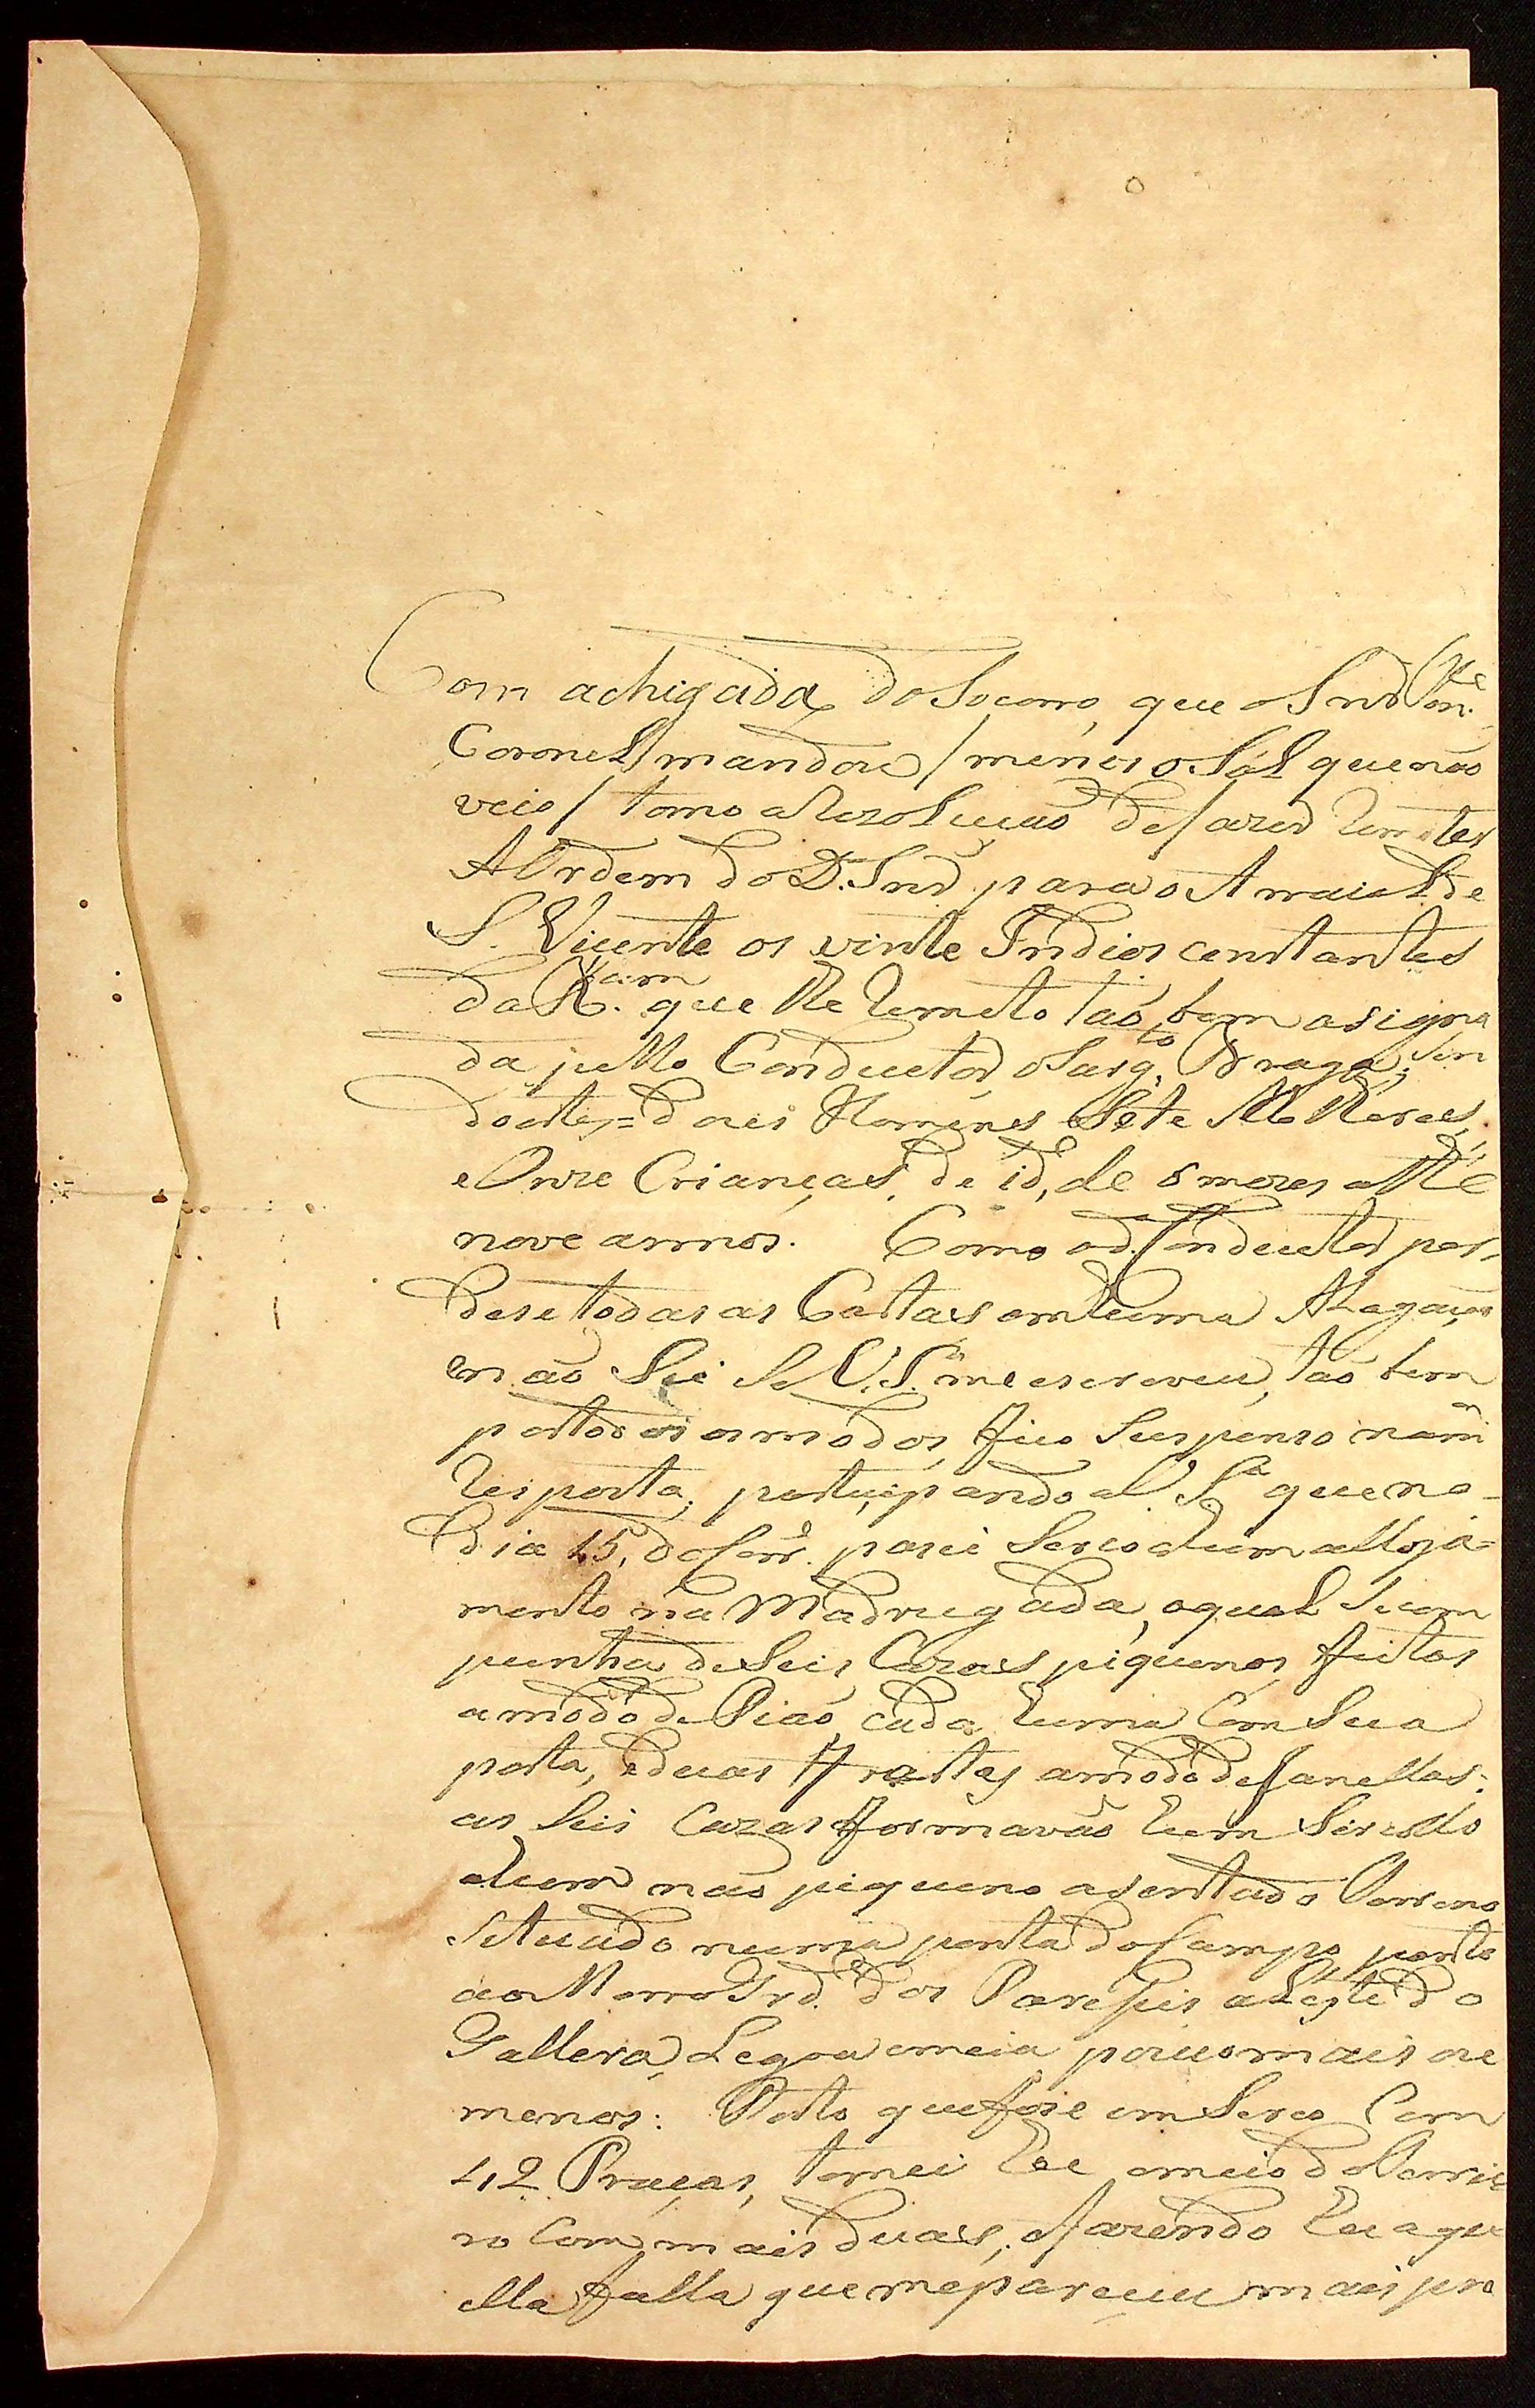 Com achigada do Socorro, que o Snr Ten.te
Coronel mandou / menos o Sal que não
veio / tomo a Rezolução de fazer Remeter
A Ordem do D. Snr para o Arraial de
S. Vicente os vinte Indios constantes
da R.am que lhe Remeto tãobem asigna
da pello Conductor o Sarg.to Braga; sen
do estes = dois Homens e Sete Molheres,
e Onze Crianças, de id.e de 6 mezes athe
nove annos. Como o d. Conductor per-
dese todas as Cartas em huma Alagação
e não Sei Se V. S.a me escreveu, tão bem
por todos os modos, fico Suspenso na m.a
Resposta; participando a V. S.a que no
dia 15, do Corr.e pasei Serco a hum alloja-
mento na Madrugada, o qual Se com
punha de Seis Cazas piquenas, feitas
a modo de Pião, cada huma Com Sua
porta, e duas frastas a modo de Janellas:
as Seis Cazas formavão hum Sircollo
e hum não piqueno asentado o Terreno
Situado numa ponta do Campo, junto
ao Morro Grd.e dos Paresis a Leste do
Gallera, Legoa e meia pouco mais ou
menos: Posto que foi em Serco Com
42 Praças, tomei Eu o meio do Terrei
ro Com mais duas, e fazendo Eu aqu
ella falla que me pareceu mais pro